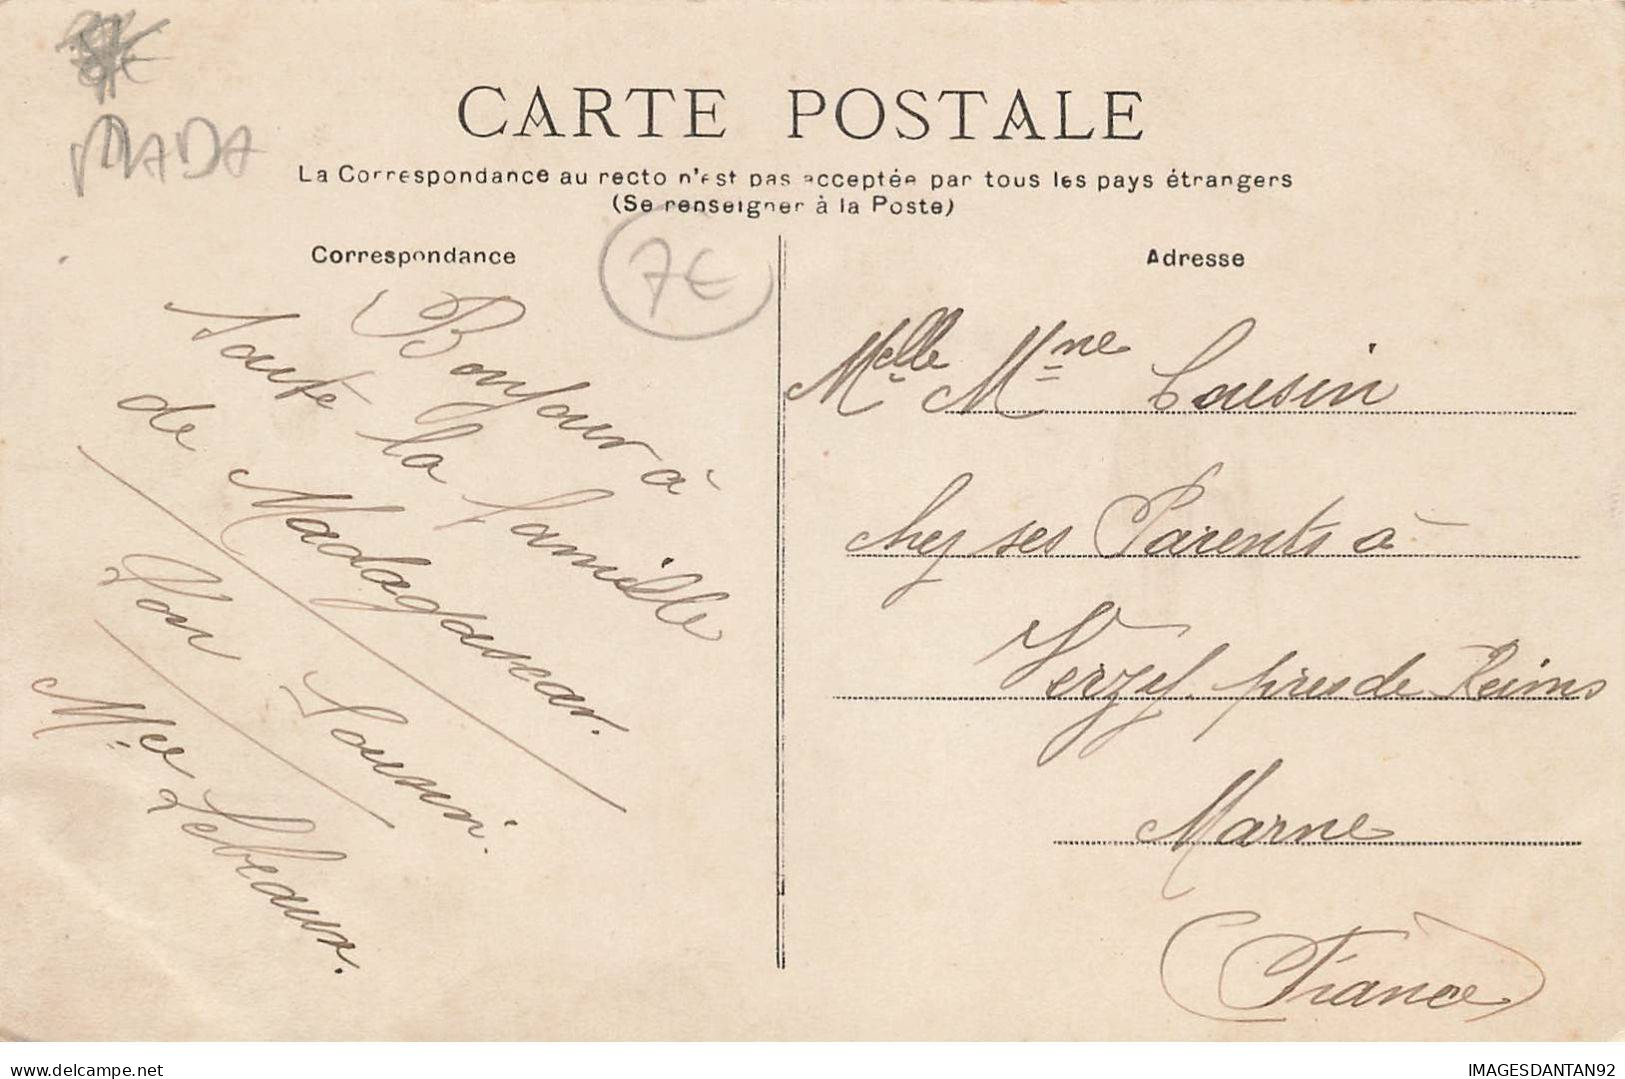 MADA
CARTE POSTALE
La Correspondance au recto n'est pas acceptée par tous les pays étrangers
(Se renseigner à la Poste)
Correspondance
7€
Bonjour à
toute la famille
de Madagascar.
Ton Cousin.
Mce Lebeaux.
Adresse
Melle Mne Cousin
chez ses Parents à
Verzy près de Reims
Marne
(France)
delcampe.net
IMAGESDANTAN92